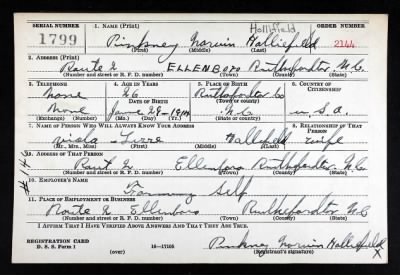 SERIAL NUMBER
1. NAME (Print)
Hollifield
ORDER NUMBER
1799
Pinkney Norvin Hollifield
2144
(First) (Middle) (Last)
2. ADDRESS (Print)
Route 2 ELLENBORO Rutherfordton N.C.
(Number and street or R. F. D. number) (Town) (County) (State)
3. TELEPHONE
4. AGE IN YEARS
5. PLACE OF BIRTH
6. COUNTRY OF CITIZENSHIP
None
26
Rutherfordton Co
DATE OF BIRTH
(Town or county)
None
June 29 1914
N.C
U.S.A.
(Exchange) (Number)
(Mo.) (Day) (Yr.)
(State or country)
7. NAME OF PERSON WHO WILL ALWAYS KNOW YOUR ADDRESS
8. RELATIONSHIP OF THAT PERSON
Hollifield wife
(Mr., Mrs., Miss) (First) (Middle) (Last)
9. ADDRESS OF THAT PERSON
Rout 2 Ellenboro Rutherfordton N.C.
(Number and street or R. F. D. number) (Town) (County) (State)
10. EMPLOYER'S NAME
Farming Self
11. PLACE OF EMPLOYMENT OR BUSINESS
Route 2 Ellenboro Rutherfordton N.C
(Number and street or R. F. D. number) (Town) (County) (State)
I AFFIRM THAT I HAVE VERIFIED ABOVE ANSWERS AND THAT THEY ARE TRUE.
REGISTRATION CARD
D. S. S. Form 1
(over)
16—17105
Pinkney Norvin Hollifield
(Registrant's signature)
X